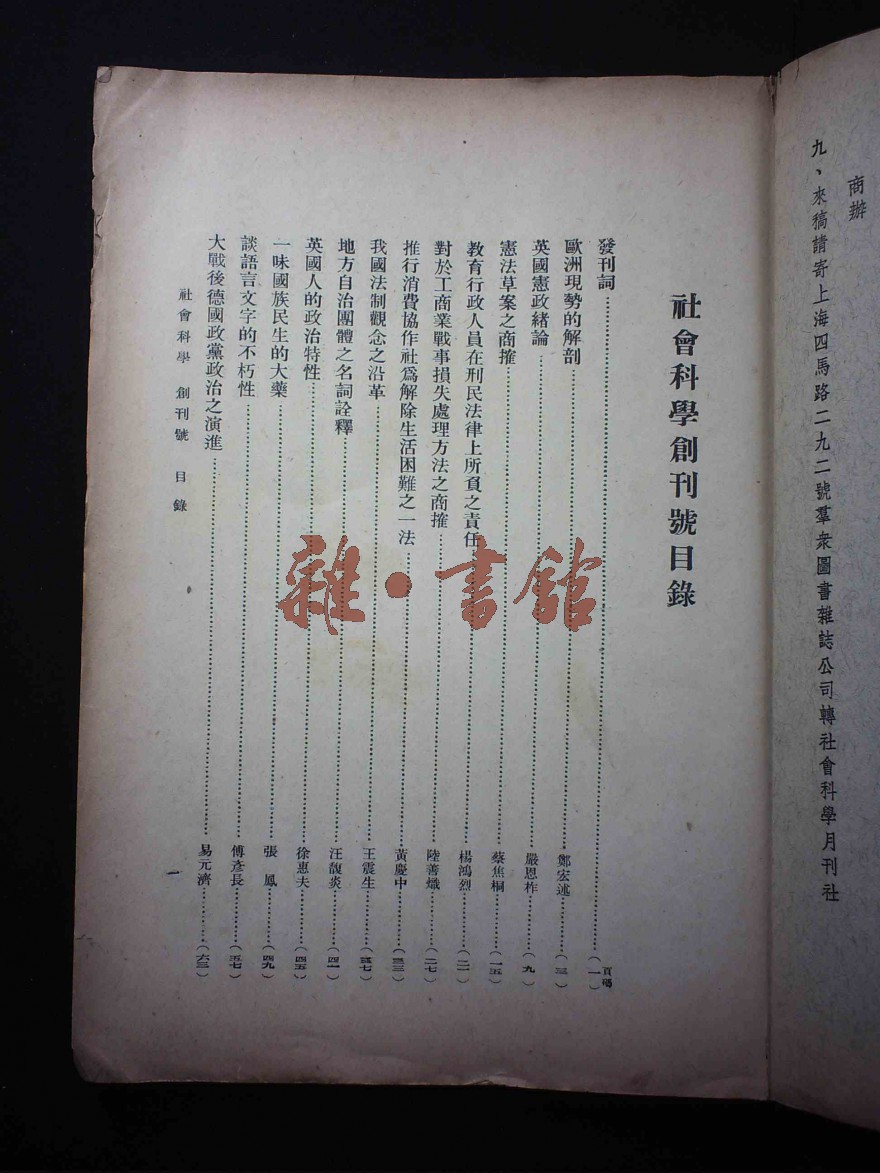 商辦
九、來稿請寄上海四馬路二九二號羣衆圖書雜誌公司轉社會科學月刊社
社會科學創刊號目錄
頁碼
發刊詞……(一)
歐洲現勢的解剖……鄭宏述……(三)
英國憲政緒論……嚴恩柞……(九)
憲法草案之商搉……蔡焦桐……(一五)
教育行政人員在刑民法律上所負之責任……楊鴻烈……(二一)
對於工商業戰事損失處理方法之商搉……陸善熾……(二七)
推行消費協作社爲解除生活困難之一法……黃慶中……(三三)
我國法制觀念之沿革……王震生……(三七)
地方自治團體之名詞詮釋……汪馥炎……(四一)
英國人的政治特性……徐惠夫……(四五)
一味國族民生的大藥……張　鳳……(四九)
談語言文字的不朽性……傅彥長……(五七)
大戰後德國政黨政治之演進……易元濟……(六三)
社會科學　創刊號　目錄
一
雜·書館